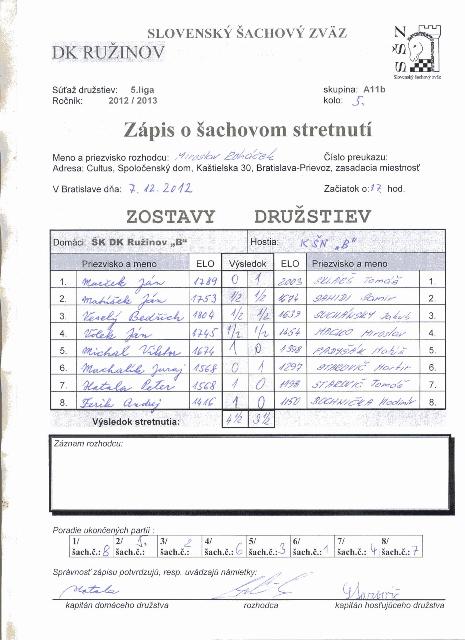 SLOVENSKÝ ŠACHOVÝ ZVÄZ
DK RUŽINOV
SŠZ
Slovenský šachový zväz
Súťaž družstiev: 5.liga skupina: A11b
Ročník: 2012 / 2013 kolo: 5.
Zápis o šachovom stretnutí
Meno a priezvisko rozhodcu: Miroslav Číslo preukazu:
Adresa: Cultus, Spoločenský dom, Kaštielska 30, Bratislava-Prievoz, zasadacia miestnosť
V Bratislave dňa: 7.12.2012 Začiatok o: 17 hod.
ZOSTAVY DRUŽSTIEV
Domáci: ŠK DK Ružinov „B" Hostia: KŠN „B"
Priezvisko a meno ELO Výsledok ELO Priezvisko a meno
1. Ján 1789 0 1 2003 Tomáš 1.
2. Ján 1753 1/2 1/2 2.
3. Veselý Bedřich 1804 1/2 1/2 1639 SUCHÁNSKY 3.
4. Vlček Ján 1745 1/2 1/2 1454 Miroslav 4.
5. Michal Viktor 1674 1 0 5.
6. Machalík Juraj 1568 0 1 1297 Martin 6.
7. Hatala Peter 1568 1 0 Tomáš 7.
8. Ferik Andrej 1416 1 0 1150 8.
Výsledok stretnutia: 4 1/2 3 1/2
Záznam rozhodcu:
Poradie ukončených partií :
1/ 2/ 3/ 4/ 5/ 6/ 7/ 8/
šach.č.: 8 šach.č.: 5 šach.č.: 2 šach.č.: 6 šach.č.: 3 šach.č.: 1 šach.č.: 4 šach.č.: 7
Správnosť zápisu potvrdzujú, resp. uvádzajú námietky:
Hatala
kapitán domáceho družstva rozhodca kapitán hosťujúceho družstva